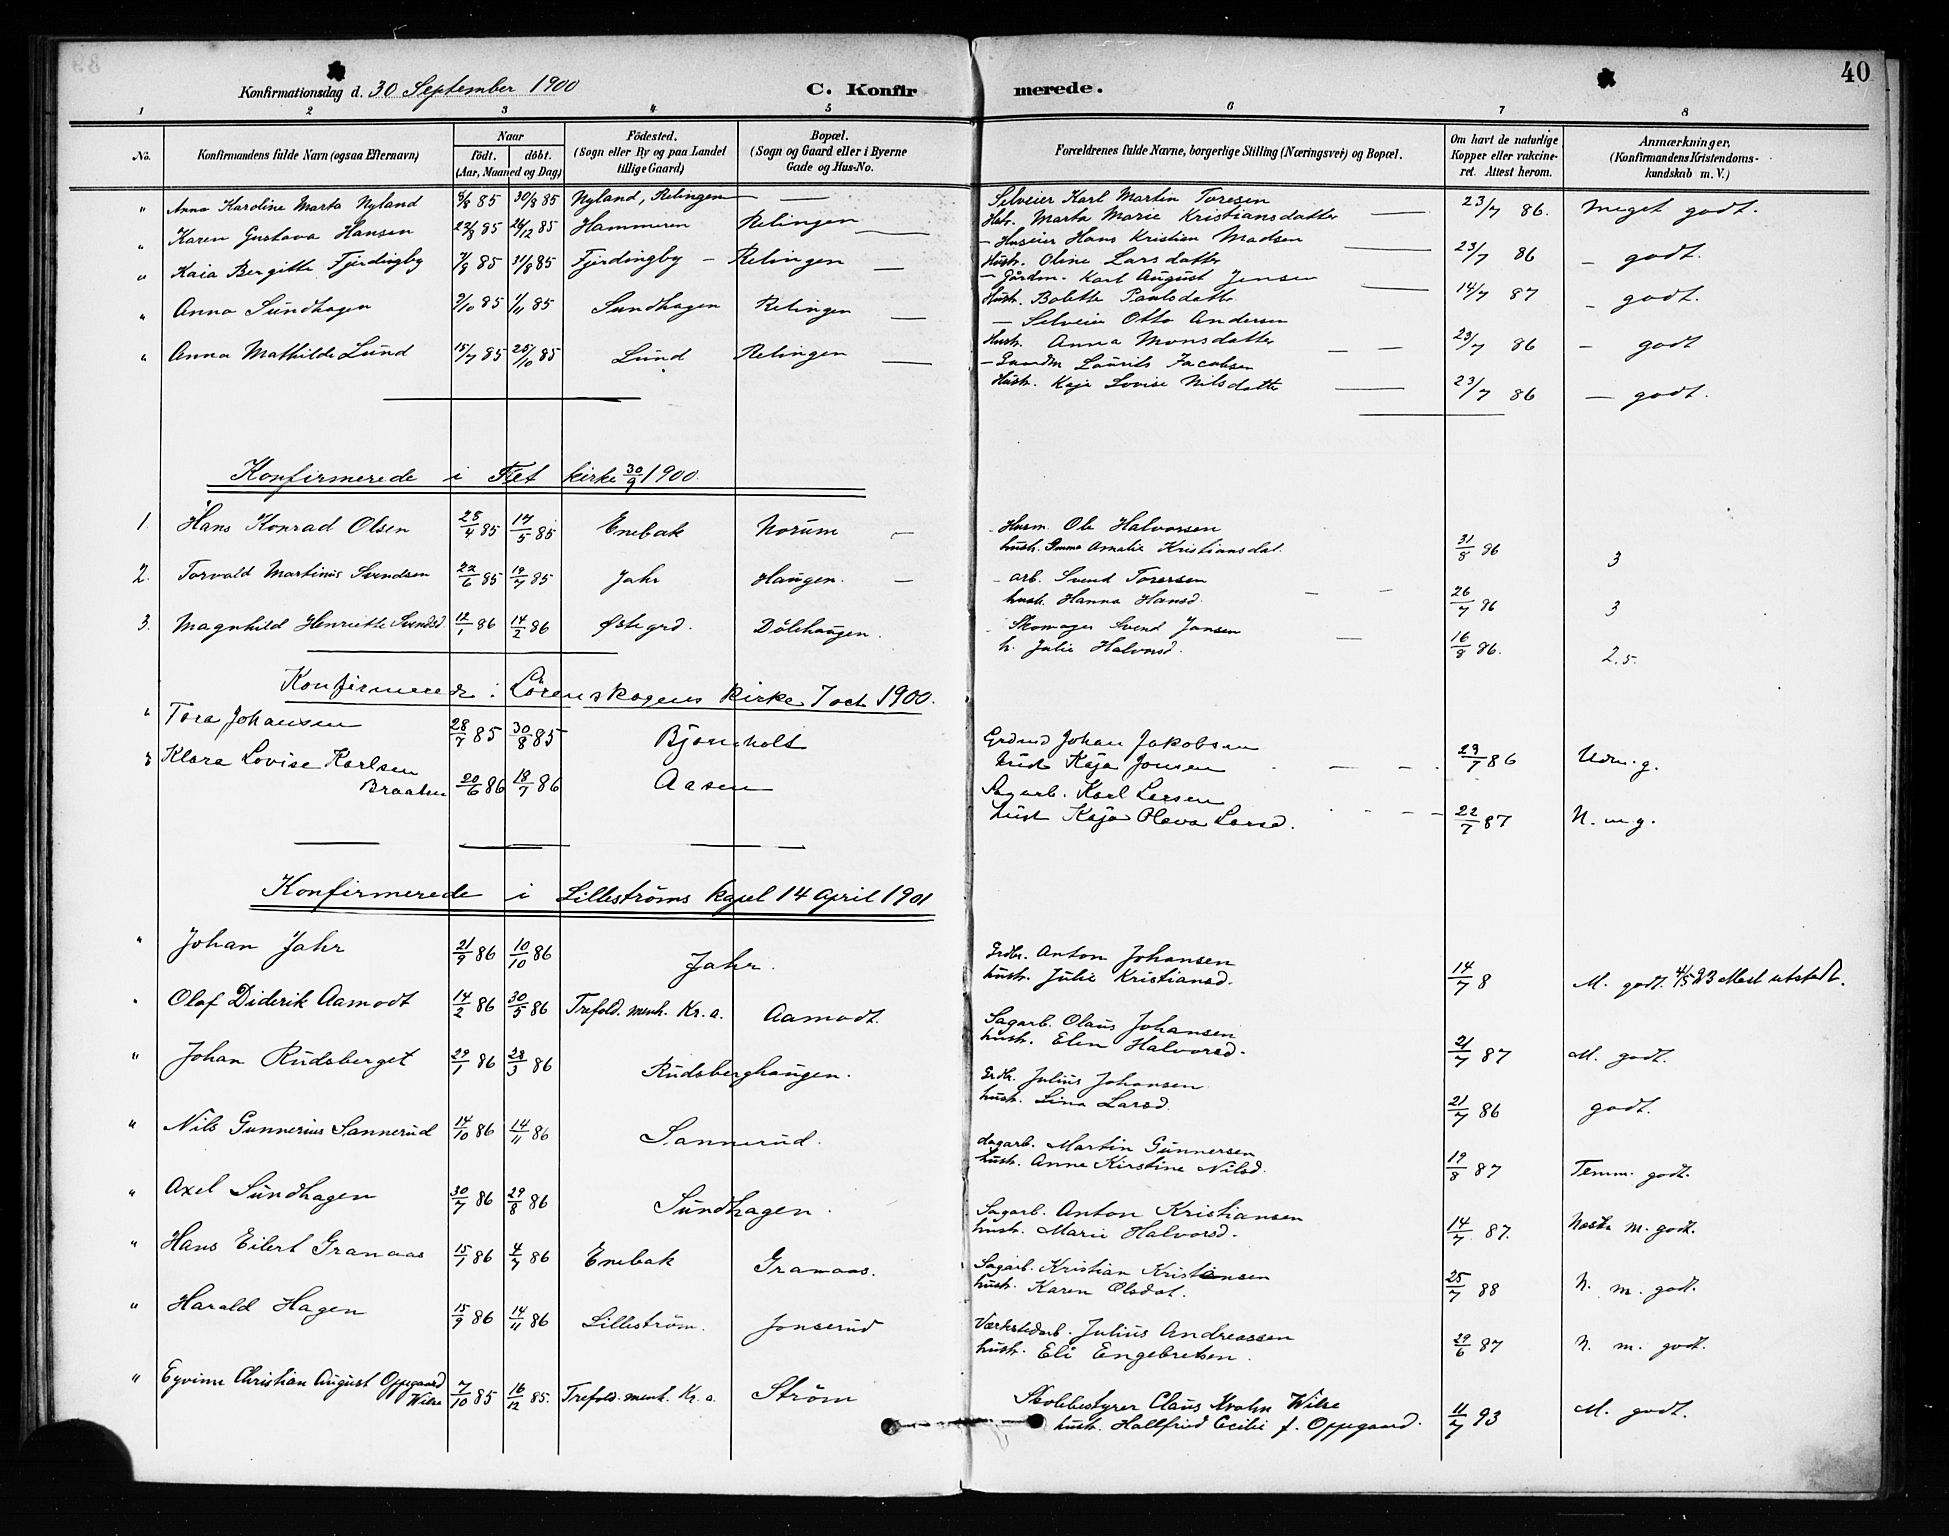 40
Konfirmationsdag d. 30 September 1900 C. Konfirmerede.
1 2 3 4 5 6 7 8
No. Konfirmandens fulde Navn (ogsaa Efternavn) Naar født. døbt. (Aar, Maaned og Dag) Fødested. (Sogn eller By og paa Landet tillige Gaard) Bopæl. (Sogn og Gaard eller i Byerne Gade og Hus-No. Forældrenes fulde Navne, borgerlige Stilling (Næringsvei) og Bopæl. Om havt de naturlige Kopper eller vakcineret. Attest herom. Anmærkninger, (Konfirmandens Kristendomskundskab m. V.)
" Anna Karoline Marta Nyland 9/8 85 30/8 85 Nyland, Relingen — Selveier Karl Martin Toresen
Hstr. Marta Marie Kristiansdatter — 23/7 86. Meget godt.
" Karen Gustava Hansen 23/8 85 26/12 85 Hammeren Relingen — Huseier Hans Kristian Madsen
Hustr. Oline Larsdatter — 23/7 86 — godt.
" Kaia Bergitte Fjerdingby 7/8 85 31/8 85 Fjerdingby — Relingen — Gårdm. Karl August Jensen
Hustr. Bolette Paulsdatter — 14/7 87 — godt.
" Anna Sundhagen 9/10 85 1/11 85 Sundhagen Relingen — Selveier Otto Andersen
Hustr. Anna Monsdatter — — 23/7 86 — godt
" Anna Mathilde Lund 15/7 85 25/10 85 Lund Relingen — Laurits Jacobsen
Hustr. Kaja Lovise Nilsdatter — 23/7 86 — godt.
Konfirmerede i Fet kirke 30/9 1900.
1. Hans Konrad Olsen 25/4 85 17/5 85 Enebak Norum — Husm. Ole Halvorsen
hustr. Emma Amalie Kristiansdat. 31/8 86 3
2. Torvald Martinus Svendsen 22/6 85 19/7 85 Jahr Haugen. — arb. Svend Torersen
hustr. Hanna Hansd. — — 26/7 86 3
3. Magnhild Henriette Svendsd. 12/1 86 14/2 86 Østegrd. Dölehaugen. Skomager Svend Jansen
h. Julie Halvorsd. — 16/8 86. 2.5.
Konfirmerede i Lørenskogens kirke 7 oct 1900.
Tora Johansen 28/7 85 30/8 85 Bjørneholt Grdmd Johan Jakobsen
hust Kaja Jonsen — — 29/7 86 Udm. g.
Klara Lovise Karlsen
Braaten 20/6 86 18/7 86 Aasen Sagarb. Karl Larsen
hust Kaja Olava Larsd. 22/7 87 N. m g.
Konfirmerede i Lilleströms kapel 14 April 1901
" Johan Jahr 21/9 86 10/10 86 Jahr. Grdbr. Anton Johansen
hustr. Julie Kristiansd. 14/7 8 M. godt. 4/5 23 Attest utstedt.
" Olaf Diderik Aamodt 14/2 86 30/5 86 Trefold. menh. Kr.a. Aamodt. Sagarb. Olaus Johansen
hustr. Elen Halvorsd. 21/7 87 M. godt.
" Johan Rudsberget 29/1 86 28/3 86 Rudsberghaugen. Grdbr. Julius Johansen
hustr. Lina Larsd. 21/7 86 godt.
" Nils Gunnerius Sannerud 14/10 86 14/11 86 Sannerud. dagarb. Martin Gunnersen
hustr. Anne Kirstine Nilsd. 19/8 87 Temm. godt.
" Axel Sundhagen 30/7 86 29/8 86 Sundhagen. Sagarb. Anton Kristiansen
hustr. Marie Halvorsd. 14/7 87. Næsten m. godt.
" Hans Eilert Granaas 15/1 86 4/7 86 Enebak Granaas. Sagarb. Kristian Kristiansen
hustr. Karen Olsdat. 25/7 88 N. m. godt.
" Harald Hagen 15/9 86 14/11 86 Lilleström. Jonserud Værkstedarb. Julius Andreassen
hustr. Eli Engebretsen. 29/6 87 N. m. godt.
" Eyvinn Christian August Oppegaard
Wilse 7/10 85 16/12 85. Trefold. menh. Kr.a. Ström Skolebestyrer Claus Wilse
hustr. Hallfrid Cecilie f. Oppegaard. 11/7 93 M. godt.